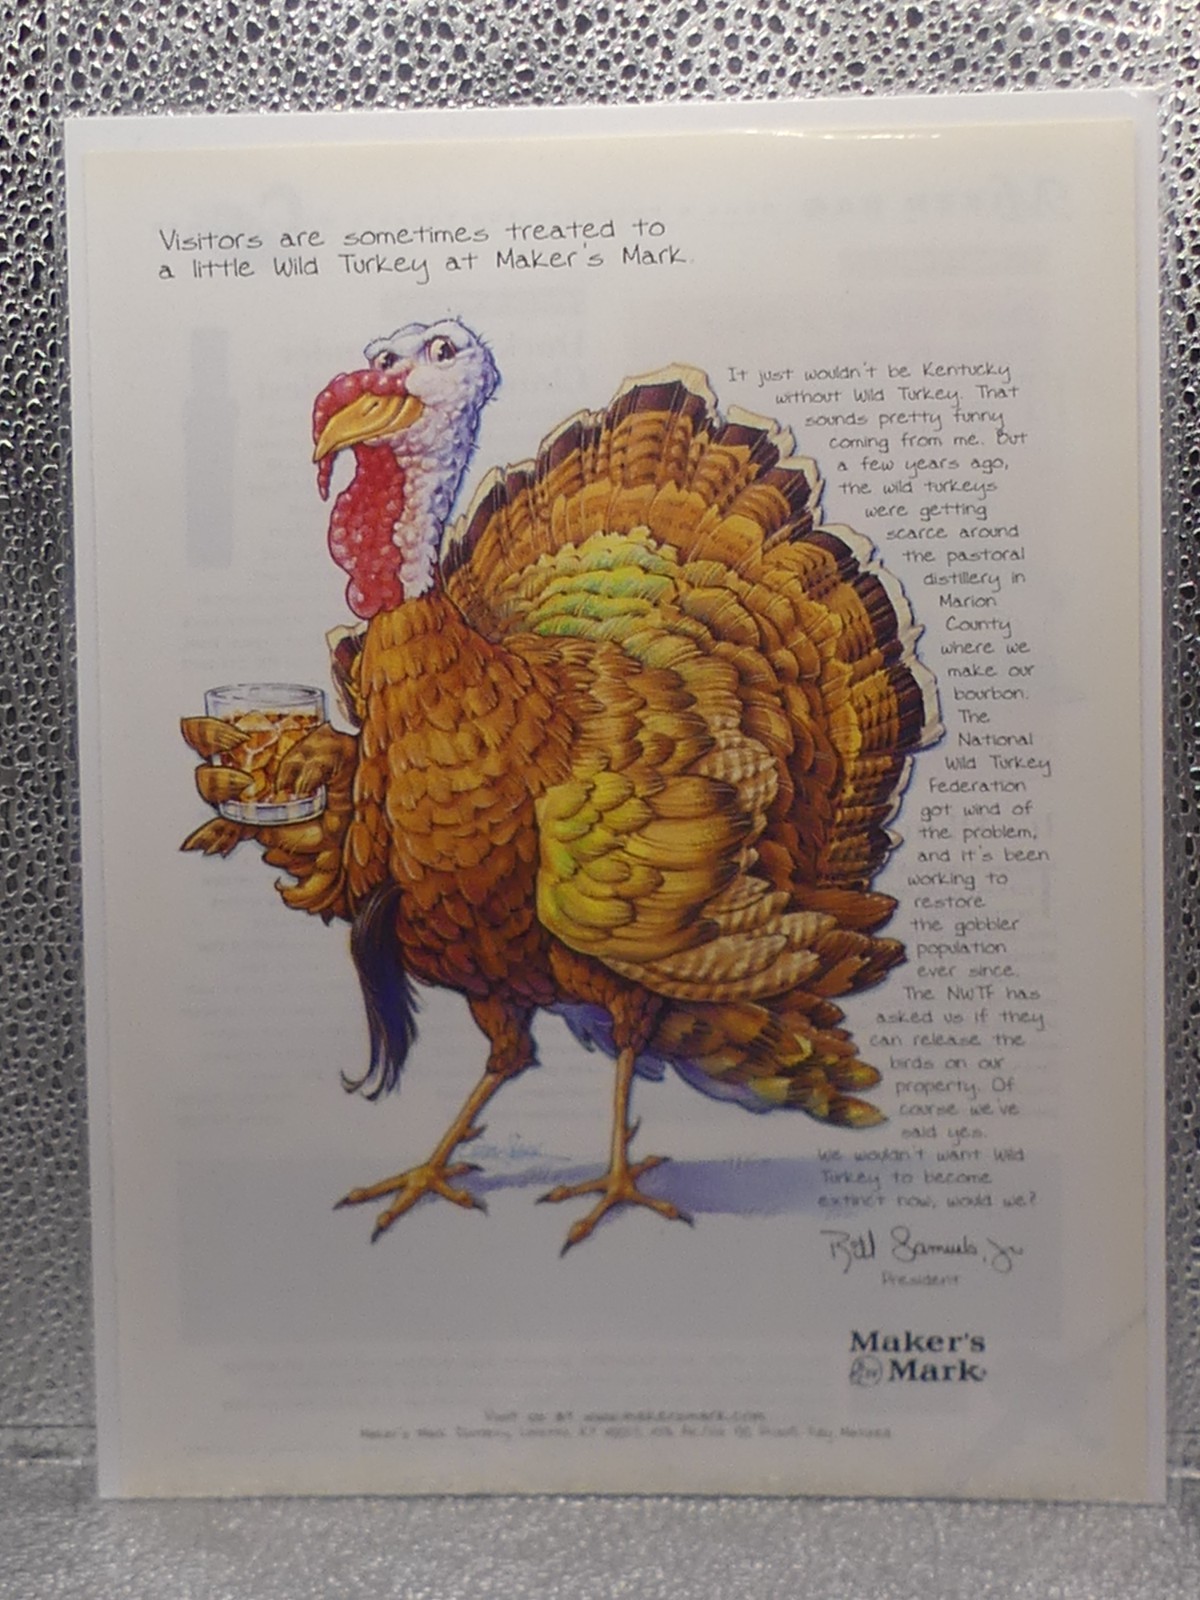 Visitors are sometimes treated to
a little Wild Turkey at Maker's Mark.
It just wouldn't be Kentucky
without Wild Turkey. That
sounds pretty funny
coming from me. But
a few years ago,
the wild turkeys
were getting
scarce around
the pastoral
distillery in
Marion
County
where we
make our
bourbon.
The
National
Wild Turkey
Federation
got wind of
the problem,
and it's been
working to
restore
the gobbler
population
ever since.
The NWTF has
asked us if they
can release the
birds on our
property. Of
course we've
said yes.
We wouldn't want Wild
Turkey to become
extinct now, would we?
Bill Samuels, Jr
President
Maker's
Mark
Visit us at www.makersmark.com
Maker's Mark Distillery, Loretto, KY